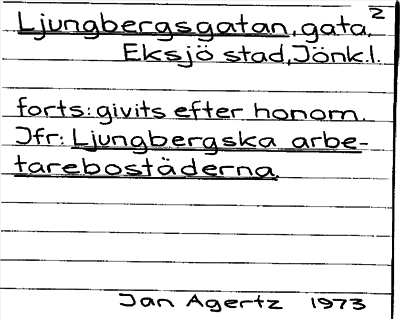 2
Ljungbergsgatan, gata,
Eksjö stad, Jönk.l.
forts: givits efter honom.
Jfr: Ljungbergska arbe-
tarebostäderna.
Jan Agertz 1973